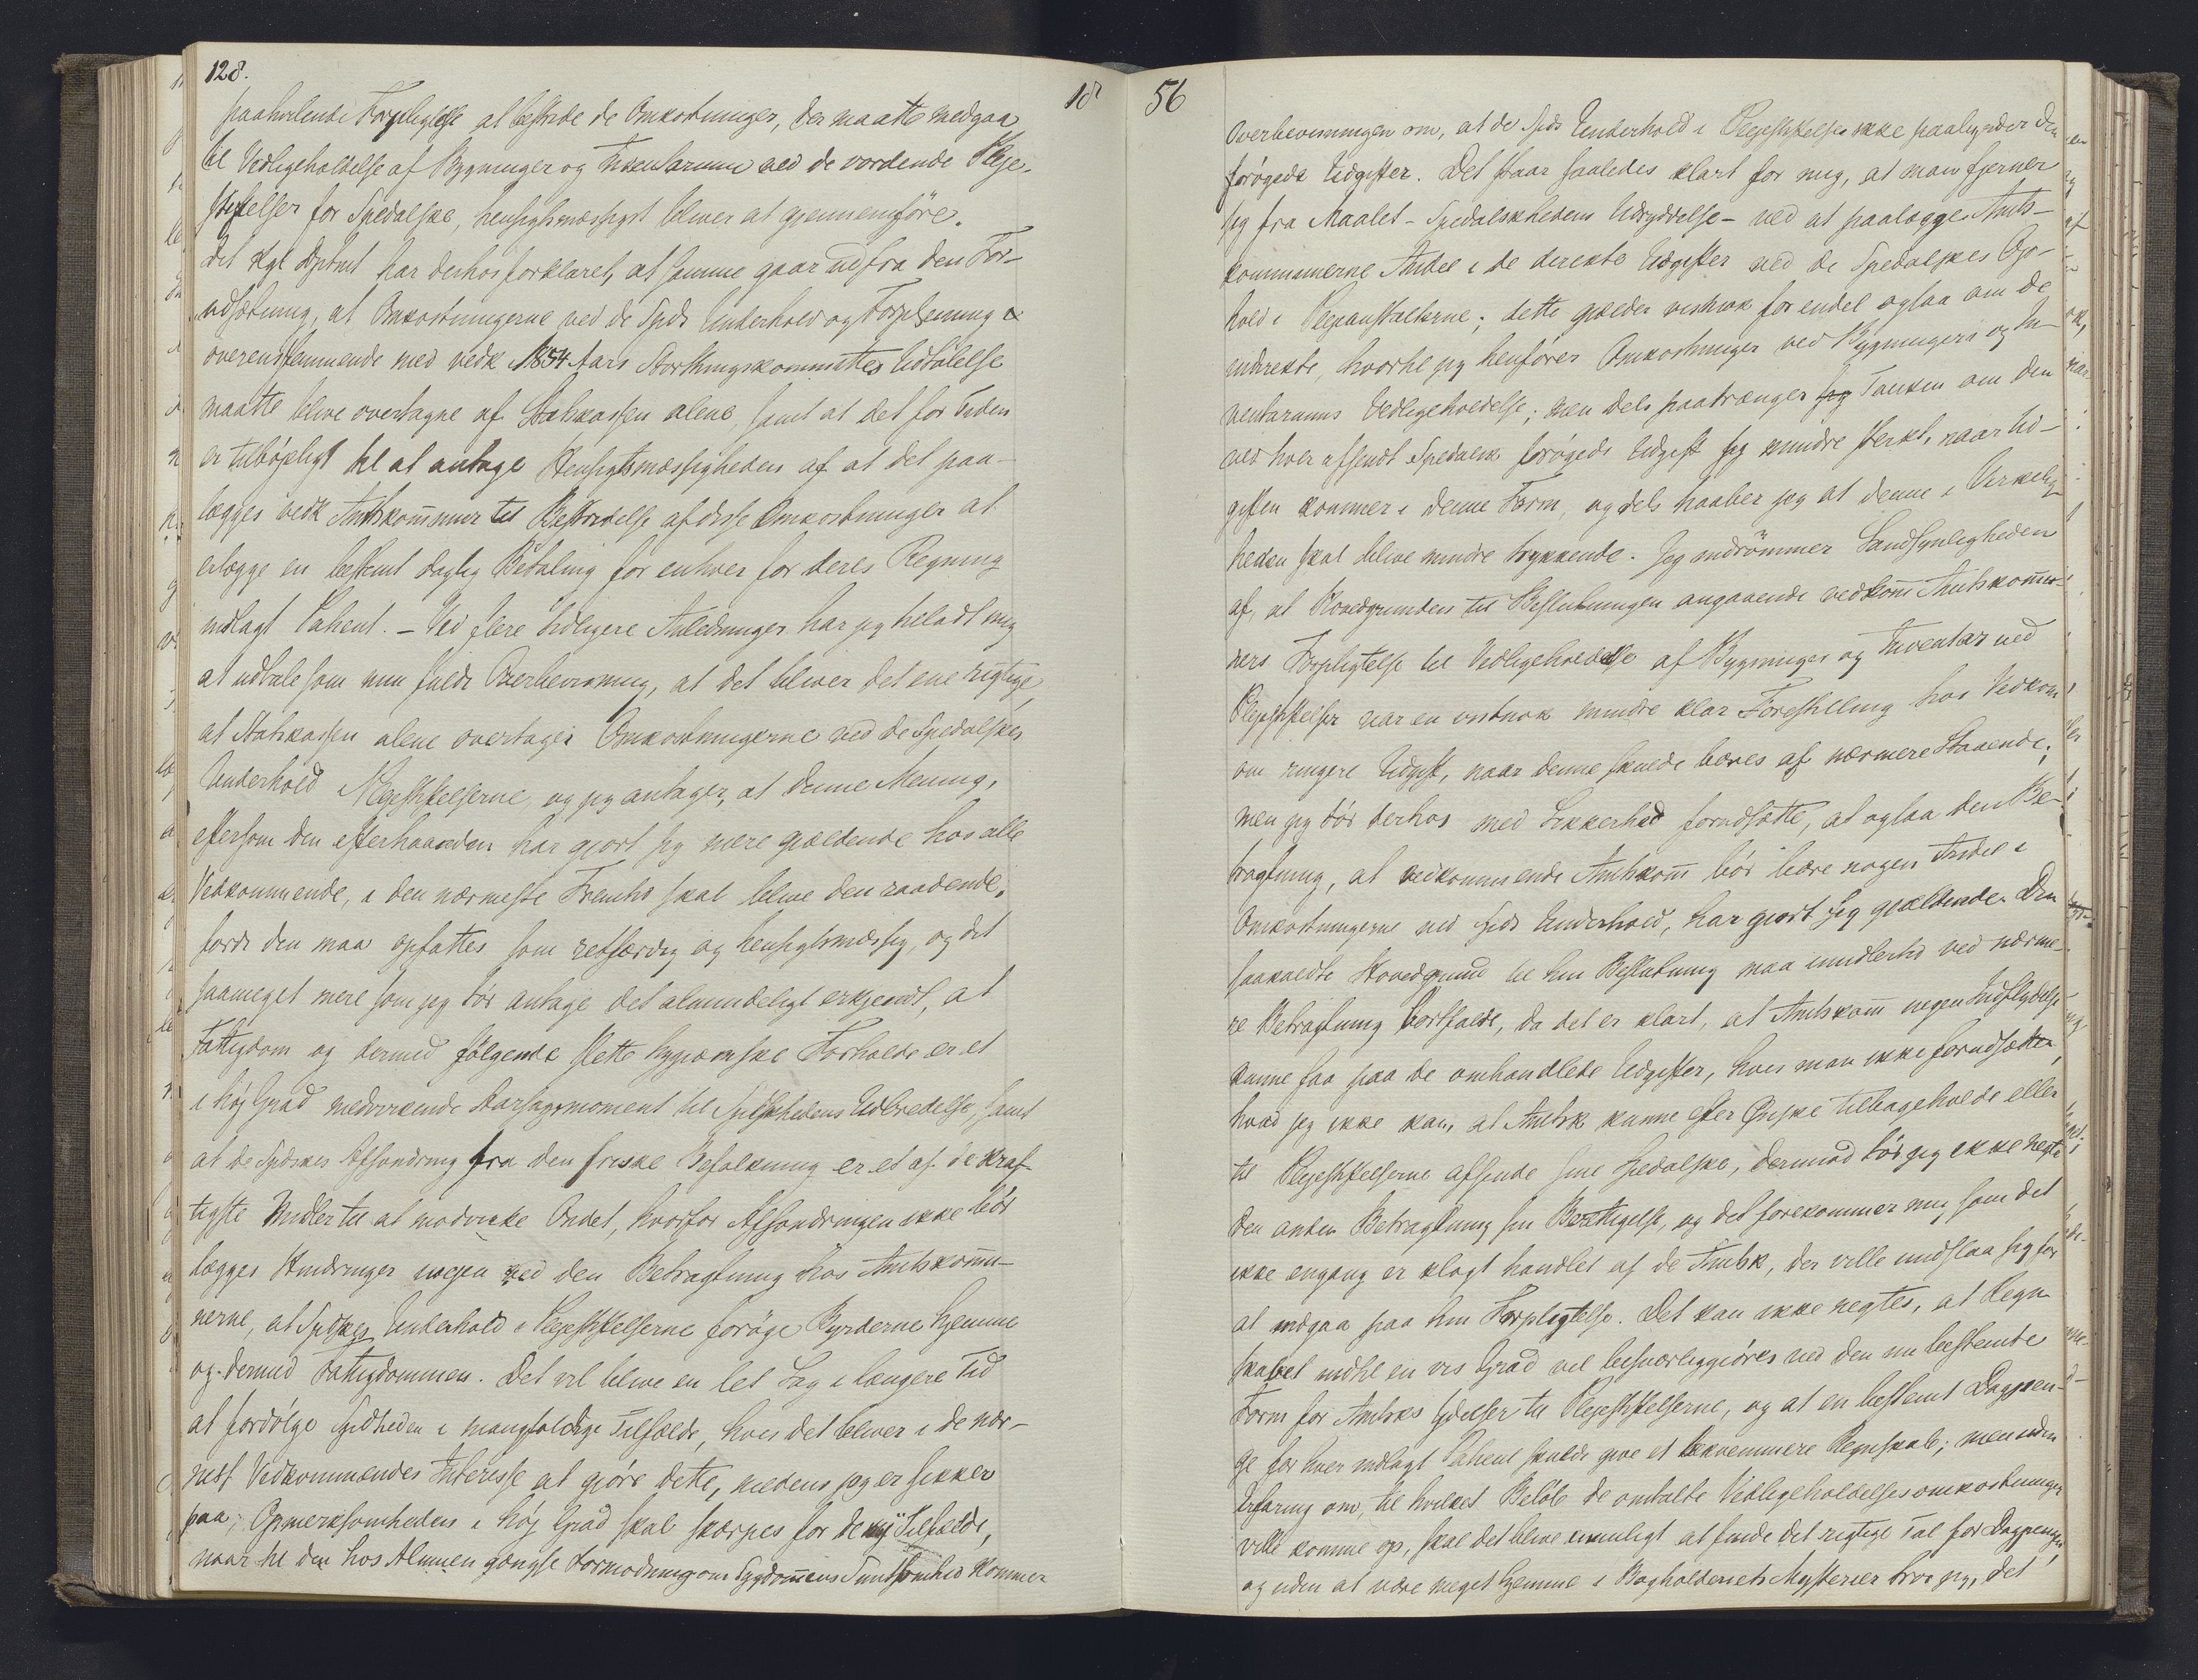 128.
18
paahvilende Forpligtelse at bestride de Omkostninger, der maatte medgaa
til Vedligeholdelse af Bygninger og Inventarium ved de vordende Pleje-
stiftelser for Spedalske, hensigtsmæssigst bliver at gjennemføre.
Det Kgl Dptmt har derhos forklaret, at samme gaar ud fra den For-
udsætning, at Omkostningerne ved de Spds Underhold og Forplejning
overensstemmende med vedk 1854 Aars Storthingskommittes Udtalelse
maatte blive overtagne af Statskassen alene, samt at det for Tiden
er tilbøjeligt til at antage Hensigtsmæssigheden af at det paa-
lægges vedk Amtskommuner til Bestridelse af disse Omkostninger at
erlægge en bestemt daglig Betaling for enhver for deres Regning
indlagt Patient. – Ved flere tidligere Anledninger har jeg tilladt mig
at udtale som min fulde Overbevisning, at det bliver det ene rigtige,
at Statskassen alene overtager Omkostningerne ved de Spedalskes
Underhold i Plejestiftelserne, og jeg antager, at denne Mening,
eftersom den efterhaanden har gjort sig mere gjældende hos alle
Vedkommende, i den nærmeste Fremtid skal blive den raadende,
fordi den maa opfattes som retfærdig og hensigtsmæssig, og det
saameget mere som jeg tør antage det almindeligt erkjendt, at
Fattigdom og dermed følgende slette hygieniske Forholde er et
i høj Grad medvirkende Aarsagsmoment til Spdskhedens Udbredelse, samt
at de Spdskes Afsondring fra den friske Befolkning er et af de kraf-
tigste Midler til at modvirke Ondet, hvorfor Afsondringen ikke bør
lægges Hindringer i vejen ved den Betragtning hos Amtskommu-
nerne, at Spdskes Underhold i Plejestiftelserne forøge Byrderne hjemme
og dermed Fattigdommen. Det vil blive en let Sag i længere Tid
at fordølge Spdheden i mangfoldige Tilfælde, hvis det bliver i de nær-
mest Vedkommendes Interesse at gjøre dette, medens jeg er sikker
paa, Opmerksomheden i høj Grad skal skærpes for de nye Tilfælde,
naar til den hos Almuen gængse Formodning om Sygdommens Smitsomhed kommer
56
Overbevisningen om, at de Spds Underhold i Plejestiftelser ikke paabyrder den
forøgede Udgifter. Det staar saaledes klart for mig, at man fjerner
sig fra Maalet – Spedalskhedens Udryddelse – ved at paalægge Amts-
kommunerne Andel i de direkte Udgifter ved de Spedalskes Op-
hold i Plejeanstalterne; dette gjelder vistnok for endel ogsaa om de
indirekte, hvortil jeg henfører Omkostninger ved Bygningers og In-
ventariums Vedligeholdelse; men dels paatrænger Tanken om den
ved hver afsendt Spedalsk forøgede Udgift sig mindre sterkt, naar Ud-
giften kommer i denne Form, og dels haaber jeg at denne i Virkelig-
heden skal blive mindre trykkende. Jeg indrømmer Sandsynligheden
af, at Hovedgrunden til Beslutningen angaaende vedkom Amtskommu-
ners Forpligtelse til Vedligeholdelse af Bygninger og Inventar ved
Plejestiftelser var en vistnok mindre klar Forestilling hos Vedkom
om ringere Udgift, naar denne skulde bæres af nærmere Staaende;
men jeg tør derhos med Sikkerhed forudsætte, at ogsaa den Be-
tragtning, at vedkommende Amtskom bør bære nogen Andel i
Omkostningerne ved Spds Underhold, har gjort sig gjældende. Den
saakaldte Hovedgrund til hin Beslutning maa imidlertid ved nærme-
re Betragtning bortfalde, da det er klart, at Amtskom ingen Indflydelse
kunne faa paa de omhandlede Udgifter, hvis man ikke forudsætter,
hvad jeg ikke kan, at Amtsk kunne efter Ønske tilbageholde eller
til Plejestiftelserne afsende sine Spedalske, derimod tør jeg ikke negte
den anden Betragtning sin Berettigelse, og det forekommer mig som det
ikke engang er klogt handlet af de Amtsk, der ville undslaa sig for
at indgaa paa hin Forpligtelse. Det kan ikke negtes, at Regn-
skabet indtil en vis Grad vil besværliggjøres ved den nu bestemte
Form for Amtsks Ydelser til Plejestiftelserne, og at en bestemt Dagpen-
ge for hver indlagt Patient skulde give et bekvemmere Regnskab; men uden
Erfaring om, til hvilket Beløb de omtalte Vedligeholdelsesomkostninger
ville komme op, skal det blive umuligt at finde det rigtige Tal for Dagpengen,
og uden at være meget hjemme i Bogholderiets Mysterier tror jeg, det